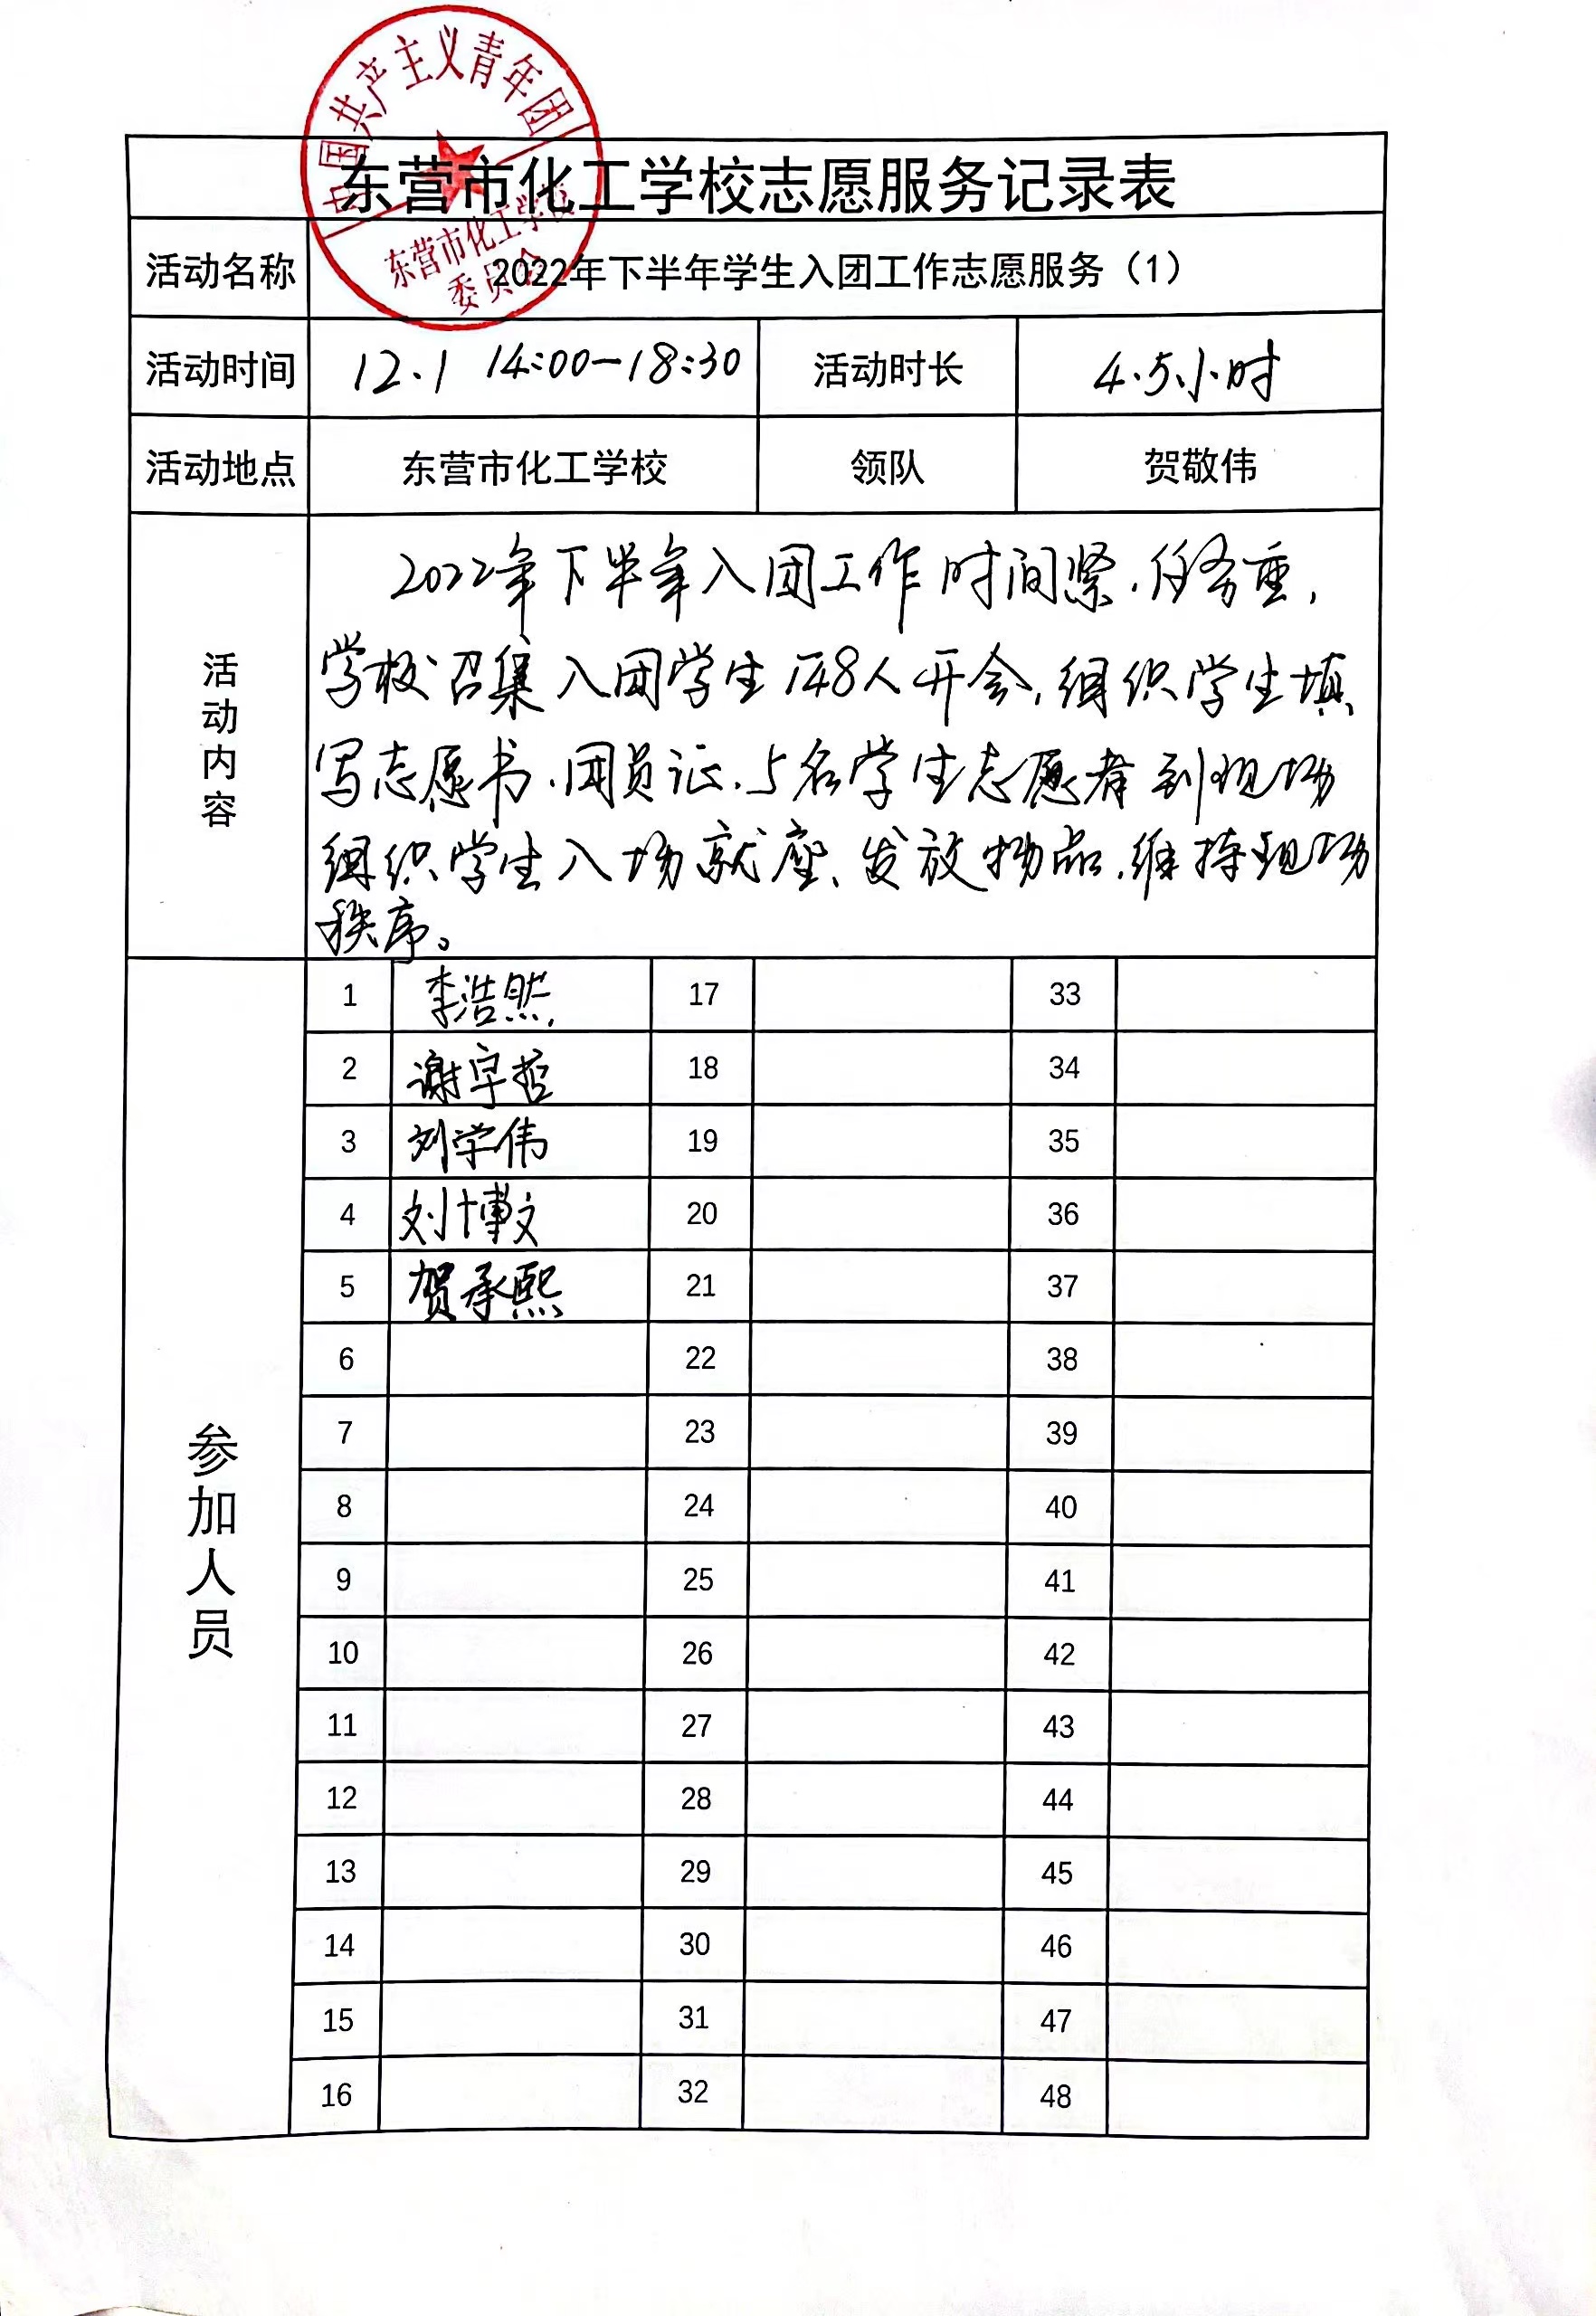 中国共产主义青年团
东营市化工学校
委员会
东营市化工学校志愿服务记录表
活动名称 2022年下半年学生入团工作志愿服务（1）
活动时间 12.1 14:00-18:30 活动时长 4.5小时
活动地点 东营市化工学校 领队 贺敬伟
活动内容
2022年下半年入团工作时间紧.任务重,
学校召集入团学生148人开会,组织学生填
写志愿书.团员证.5名学生志愿者到现场
组织学生入场就座、发放物品.维持现场
秩序。
参加人员
1 李浩然 17 33
2 谢宇哲 18 34
3 刘学伟 19 35
4 刘博文 20 36
5 贺承熙 21 37
6 22 38
7 23 39
8 24 40
9 25 41
10 26 42
11 27 43
12 28 44
13 29 45
14 30 46
15 31 47
16 32 48